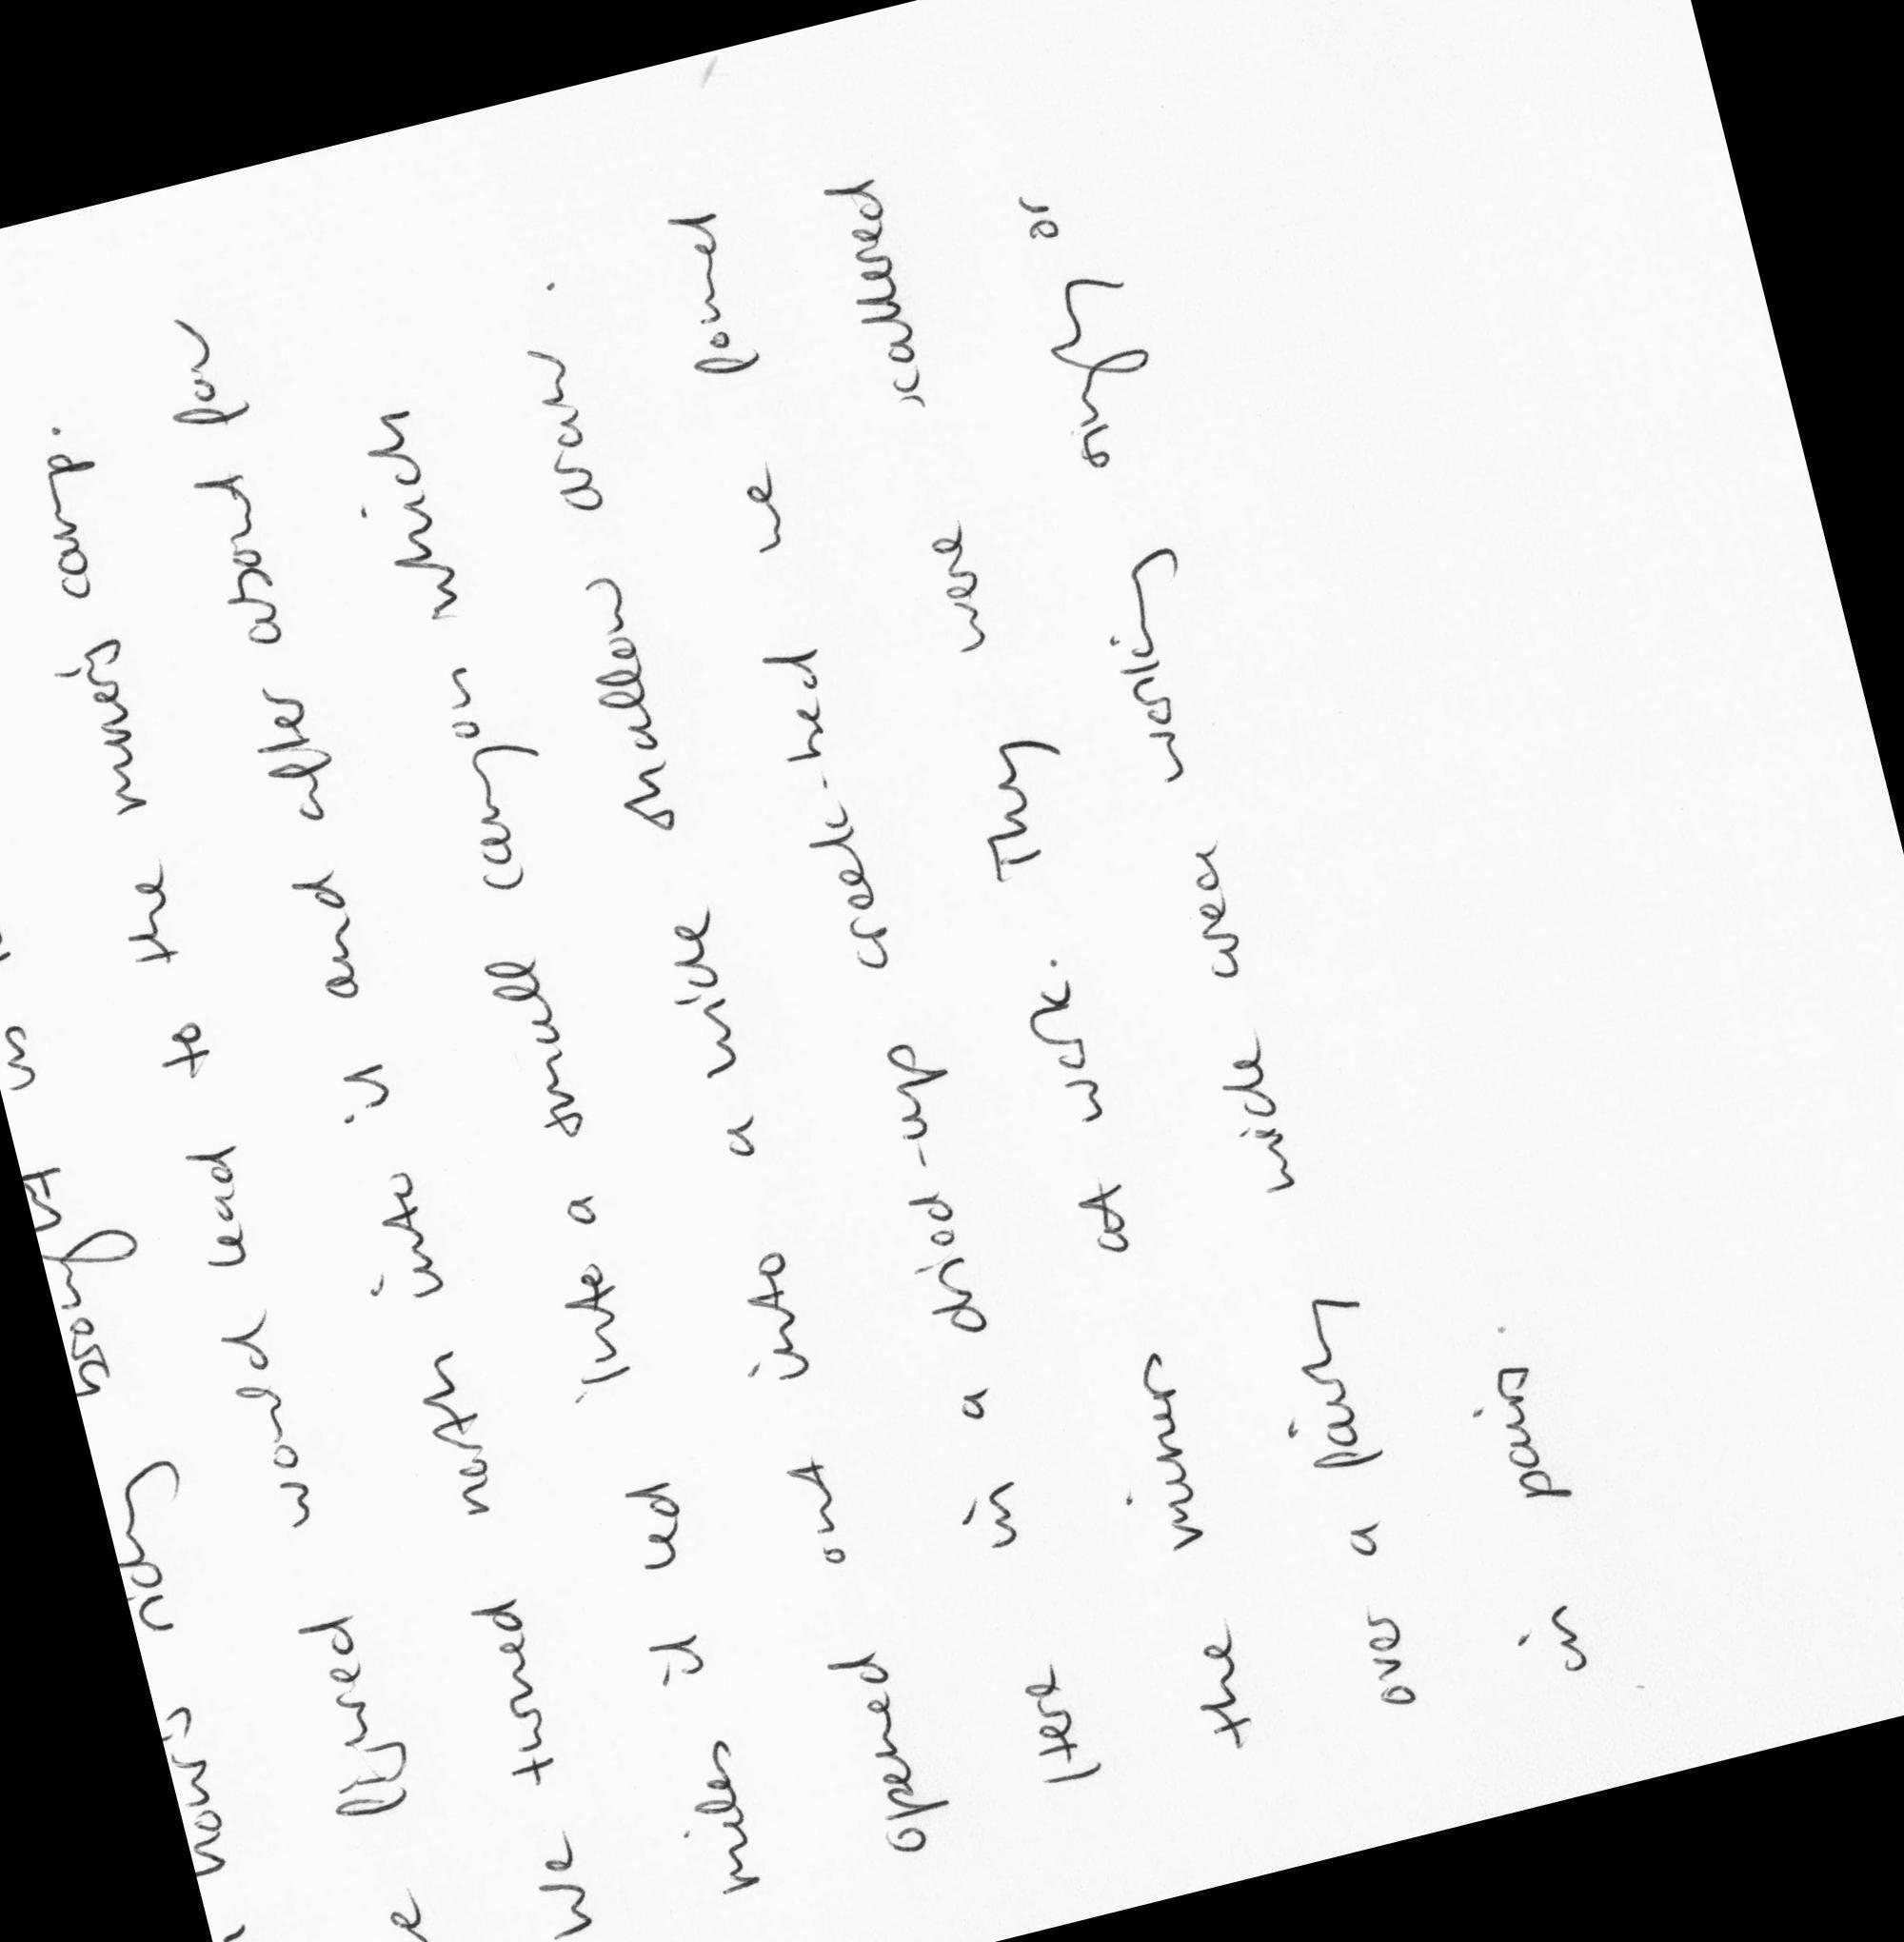 hours riding brought
figured would lead to the miner's camp.
We turned north into it and after about four
miles it led into a small canyon which
opened out into a wide shallow draw.
Here in a dried-up creek-bed we found
the miners at work. They were scattered
over a fairly wide area working singly or
in pairs.